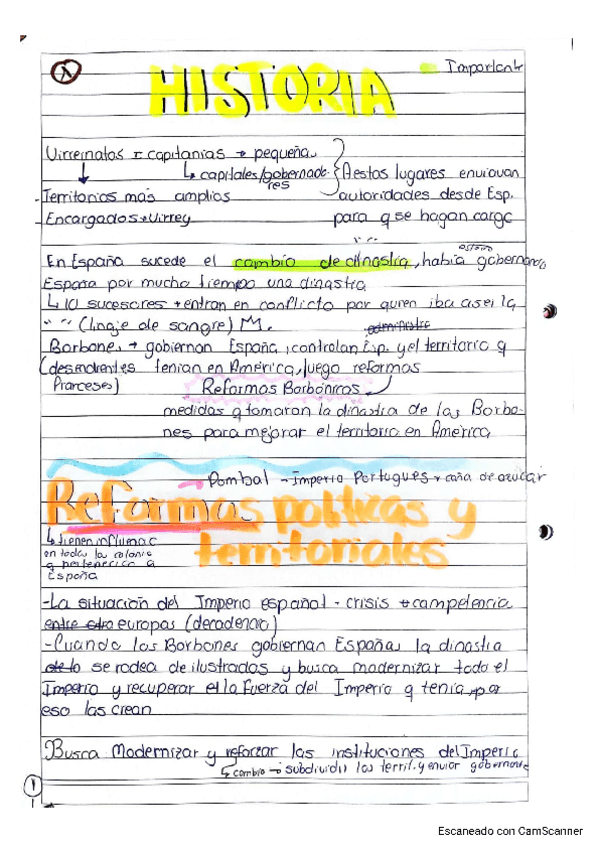 Importante
HISTORIA
Virreinatos y capitanias → pequeña
↳ capitales/gobernadores
Territorios más amplios
- Encargados → Virrey
A estos lugares enviavan
autoridades desde Esp.
para q se hagan cargo
En España sucede el cambio de dinastia, había estado gobernando
España por mucho tiempo una dinastia
↳ 10 sucesores → entran en conflicto por quien iba a ser la
" " (linaje de sangre) M.
administra
Borbones → gobiernan España, controlan Esp. y el territorio q
(descendientes tenian en América, luego reformas
Franceses) Reformas Borbónicas
medidas q tomaron la dinastia de los Borbo-
nes para mejorar el territorio en América
Pombal - Imperio Portugues → caña de azucar
Reformas politicas y
territoriales
↳ tienen influenc
en todas las colonia
q pertenecian a
España
-La situación del Imperio español - crisis → competencia
entre otro europas (decadencia)
-Cuando los Borbones gobiernan España, la dinastia
se rodea de ilustrados y busca modernizar todo el
Imperio y recuperar la fuerza del Imperio q tenia, por
eso las crean
Busca Modernizar y reforzar las instituciones del Imperio
↳ cambio → subdividir los territ. y enviar gobernante
1
Escaneado con CamScanner